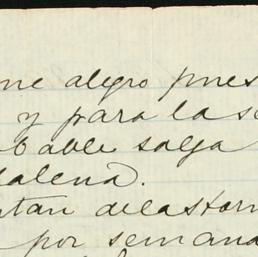 me alegro pues
y para las
bable salga
dalena.
tan de las tor
por semana